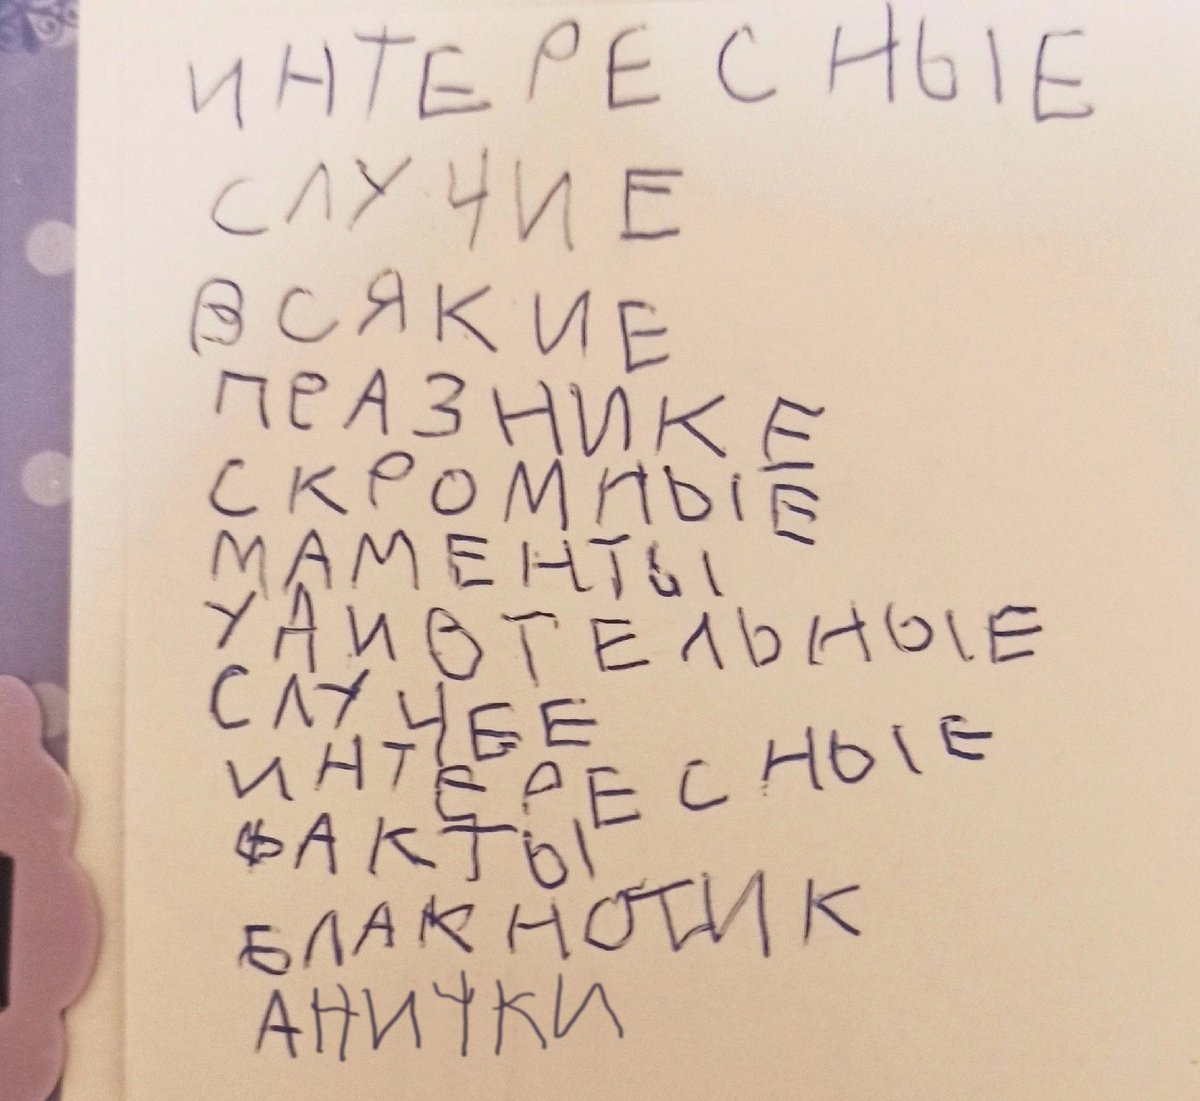 ИНТЕРЕСНЫЕ
СЛУЧИЕ
ВСЯКИЕ
ПРАЗНИКЕ
СКРОМНЫЕ
МАМЕНТЫ
УДИВТЕЛЬНЫЕ
СЛУЧЕЕ
ИНТЕРЕСНЫЕ
ФАКТЫ
БЛАКНОТИК
АНИЧКИ